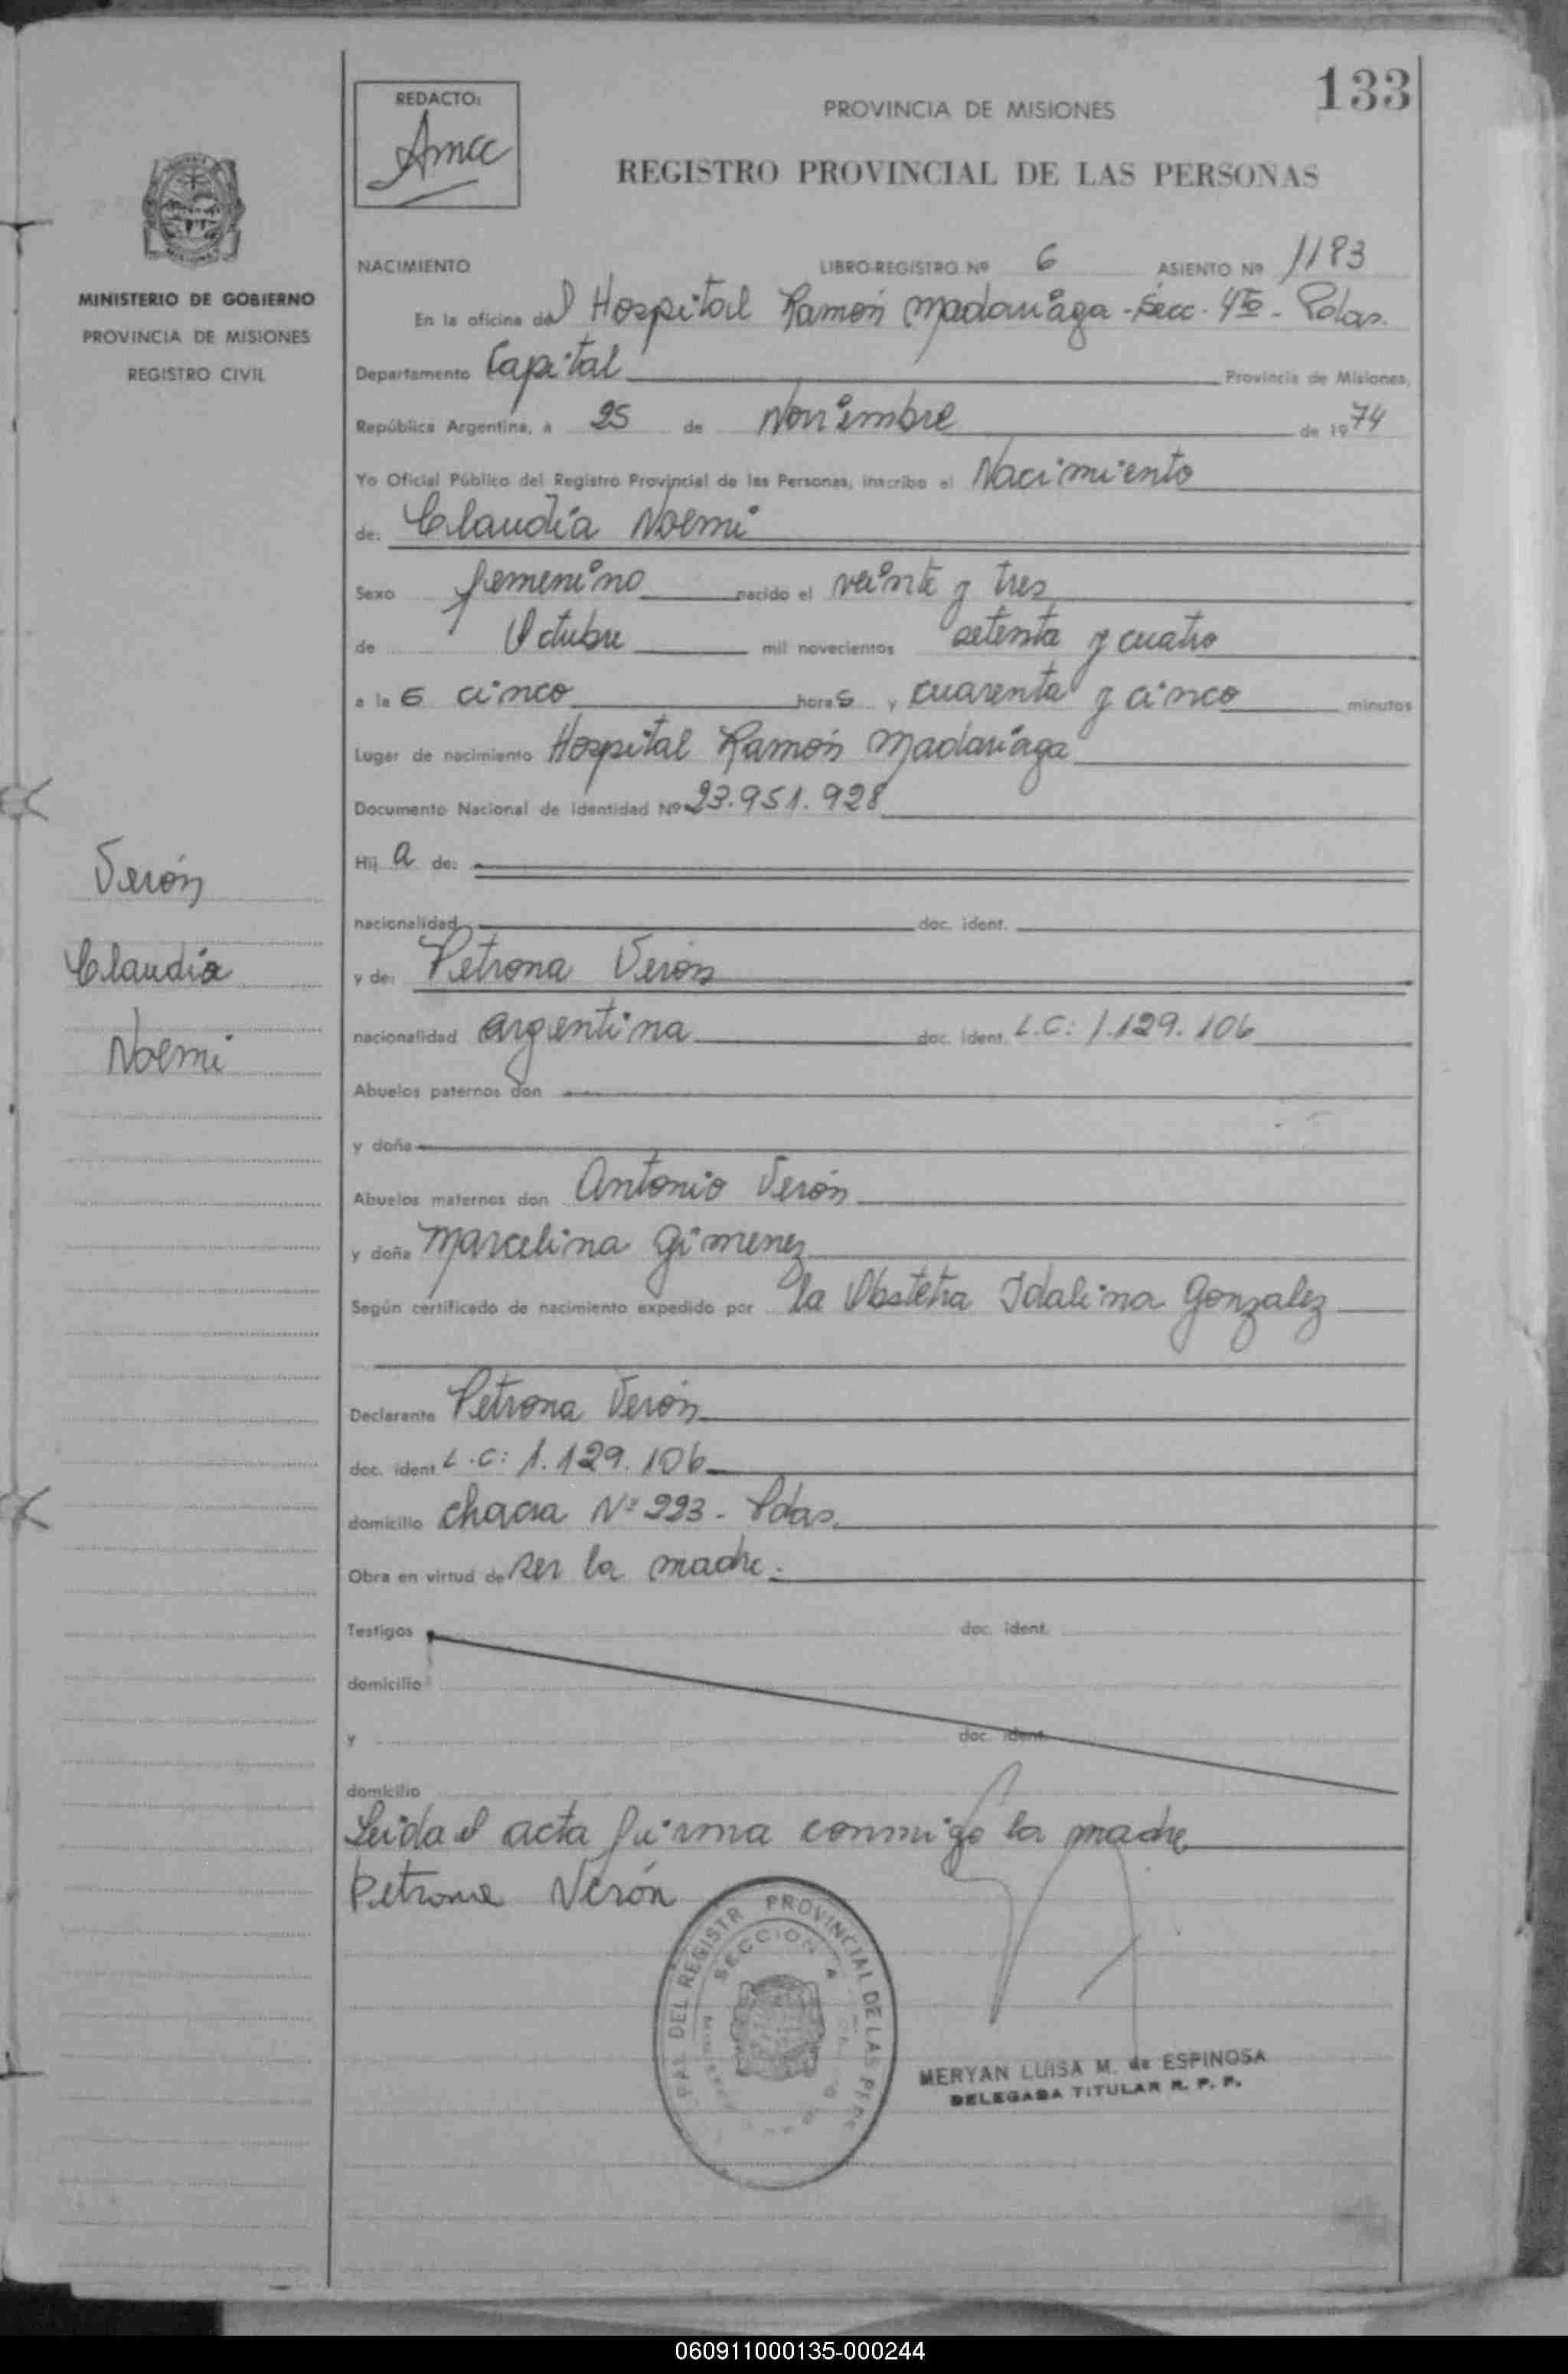 133
REDACTO:
Amcc
PROVINCIA DE MISIONES
REGISTRO PROVINCIAL DE LAS PERSONAS
MINISTERIO DE GOBIERNO
PROVINCIA DE MISIONES
REGISTRO CIVIL
NACIMIENTO LIBRO-REGISTRO Nº 6 ASIENTO Nº 1183
En la oficina del Hospital Ramón Madariaga - Secc. 4ta - Pdas.
Departamento Capital Provincia de Misiones,
República Argentina, a 25 de Noviembre de 1974
Yo Oficial Público del Registro Provincial de las Personas, inscribo el Nacimiento
de: Claudia Noemi
Sexo femenino nacido el veinte y tres
de Octubre mil novecientos setenta y cuatro
a las cinco horas y cuarenta y cinco minutos
Lugar de nacimiento Hospital Ramón Madariaga
Documento Nacional de Identidad Nº 23.951.928
Hija de:
nacionalidad doc. ident.
Verón
Claudia
Noemi
y de: Petrona Verón
nacionalidad argentina doc. ident. L.C: 1.129.106
Abuelos paternos don
y doña
Abuelos maternos don Antonio Verón
y doña Marcelina Gimenez
Según certificado de nacimiento expedido por la Obstetra Idalina Gonzalez
Declarante Petrona Verón
doc. ident. L.C: 1.129.106
domicilio chacra Nº 223 - Pdas.
Obra en virtud de ser la madre.
Testigos doc. ident.
domicilio
y doc. ident.
domicilio
Leida el acta firma conmigo la madre
Petrona Verón
DEL REGISTR PROVINCIAL DE LAS PE
SECCION 4
MERYAN LUISA M. de ESPINOSA
DELEGADA TITULAR R. P. P.
060911000135-000244